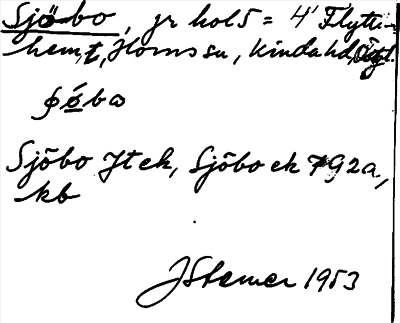 Sjöbo, jr hol 5 = 4' Flytt-
hem, t, Horns sn, Kinda hd, Ögl.
ɸø̄ba
Sjöbo Jt ek, Sjöbo ek 792a,
kb
JStemer 1953